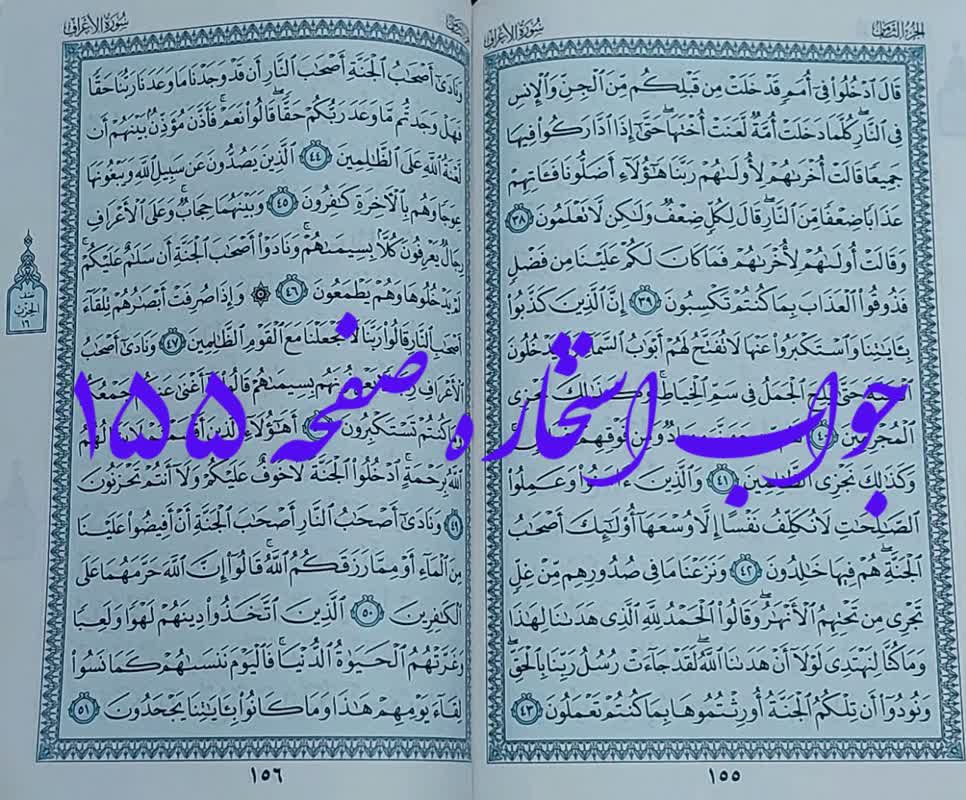 سُورَةُ الأَعْرَافِ
قَالَ ادْخُلُوا فِي أُمَمٍ قَدْ خَلَتْ مِن قَبْلِكُم مِّنَ الْجِنِّ وَالْإِنسِ
فِي النَّارِ كُلَّمَا دَخَلَتْ أُمَّةٌ لَّعَنَتْ أُخْتَهَا حَتَّىٰ إِذَا ادَّارَكُوا فِيهَا
جَمِيعًا قَالَتْ أُخْرَاهُمْ لِأُولَاهُمْ رَبَّنَا هَٰؤُلَاءِ أَضَلُّونَا فَآتِهِمْ
عَذَابًا ضِعْفًا مِّنَ النَّارِ قَالَ لِكُلٍّ ضِعْفٌ وَلَٰكِن لَّا تَعْلَمُونَ ٣٨
وَقَالَتْ أُولَاهُمْ لِأُخْرَاهُمْ فَمَا كَانَ لَكُمْ عَلَيْنَا مِن فَضْلٍ
فَذُوقُوا الْعَذَابَ بِمَا كُنتُمْ تَكْسِبُونَ ٣٩ إِنَّ الَّذِينَ كَذَّبُوا
بِآيَاتِنَا وَاسْتَكْبَرُوا عَنْهَا لَا تُفَتَّحُ لَهُمْ أَبْوَابُ السَّمَاءِ يَدْخُلُونَ
حَتَّىٰ الْجَمَلُ فِي سَمِّ الْخِيَاطِ وَكَذَٰلِكَ نَجْزِي
الْمُجْرِمِينَ ٤٠
وَكَذَٰلِكَ نَجْزِي الظَّالِمِينَ ٤١ وَالَّذِينَ آمَنُوا وَعَمِلُوا
الصَّالِحَاتِ لَا نُكَلِّفُ نَفْسًا إِلَّا وُسْعَهَا أُولَٰئِكَ أَصْحَابُ
الْجَنَّةِ هُمْ فِيهَا خَالِدُونَ ٤٢ وَنَزَعْنَا مَا فِي صُدُورِهِم مِّنْ غِلٍّ
تَجْرِي مِن تَحْتِهِمُ الْأَنْهَارُ وَقَالُوا الْحَمْدُ لِلَّهِ الَّذِي هَدَانَا لِهَٰذَا
وَمَا كُنَّا لِنَهْتَدِيَ لَوْلَا أَنْ هَدَانَا اللَّهُ لَقَدْ جَاءَتْ رُسُلُ رَبِّنَا بِالْحَقِّ
وَنُودُوا أَن تِلْكُمُ الْجَنَّةُ أُورِثْتُمُوهَا بِمَا كُنتُمْ تَعْمَلُونَ ٤٣
١٥٥
سُورَةُ الأَعْرَافِ
وَنَادَىٰ أَصْحَابُ الْجَنَّةِ أَصْحَابَ النَّارِ أَن قَدْ وَجَدْنَا مَا وَعَدَنَا رَبُّنَا حَقًّا
فَهَلْ وَجَدتُّم مَّا وَعَدَ رَبُّكُمْ حَقًّا قَالُوا نَعَمْ فَأَذَّنَ مُؤَذِّنٌ بَيْنَهُمْ أَن
لَّعْنَةُ اللَّهِ عَلَى الظَّالِمِينَ ٤٤ الَّذِينَ يَصُدُّونَ عَن سَبِيلِ اللَّهِ وَيَبْغُونَهَا
عِوَجًا وَهُم بِالْآخِرَةِ كَافِرُونَ ٤٥ وَبَيْنَهُمَا حِجَابٌ وَعَلَى الْأَعْرَافِ
رِجَالٌ يَعْرِفُونَ كُلًّا بِسِيمَاهُمْ وَنَادَوْا أَصْحَابَ الْجَنَّةِ أَن سَلَامٌ عَلَيْكُمْ
لَمْ يَدْخُلُوهَا وَهُمْ يَطْمَعُونَ ٤٦ وَإِذَا صُرِفَتْ أَبْصَارُهُمْ تِلْقَاءَ
أَصْحَابِ النَّارِ قَالُوا رَبَّنَا لَا تَجْعَلْنَا مَعَ الْقَوْمِ الظَّالِمِينَ ٤٧ وَنَادَىٰ أَصْحَابُ
الْأَعْرَافِ يَعْرِفُونَهُم بِسِيمَاهُمْ قَالُوا أَغْنَىٰ عَنكُمْ جَمْعُكُمْ
وَمَا كُنتُمْ تَسْتَكْبِرُونَ أَهَٰؤُلَاءِ الَّذِينَ أَقْسَمْتُمْ لَا يَنَالُهُمُ
اللَّهُ بِرَحْمَةٍ ادْخُلُوا الْجَنَّةَ لَا خَوْفٌ عَلَيْكُمْ وَلَا أَنتُمْ تَحْزَنُونَ
٤٩ وَنَادَىٰ أَصْحَابُ النَّارِ أَصْحَابَ الْجَنَّةِ أَنْ أَفِيضُوا عَلَيْنَا
مِنَ الْمَاءِ أَوْ مِمَّا رَزَقَكُمُ اللَّهُ قَالُوا إِنَّ اللَّهَ حَرَّمَهُمَا عَلَى
الْكَافِرِينَ ٥٠ الَّذِينَ اتَّخَذُوا دِينَهُمْ لَهْوًا وَلَعِبًا
وَغَرَّتْهُمُ الْحَيَاةُ الدُّنْيَا فَالْيَوْمَ نَنسَاهُمْ كَمَا نَسُوا
لِقَاءَ يَوْمِهِمْ هَٰذَا وَمَا كَانُوا بِآيَاتِنَا يَجْحَدُونَ ٥١
١٥٦
الحزب
١٦
جواب استخاره صفحه ۱۵۵